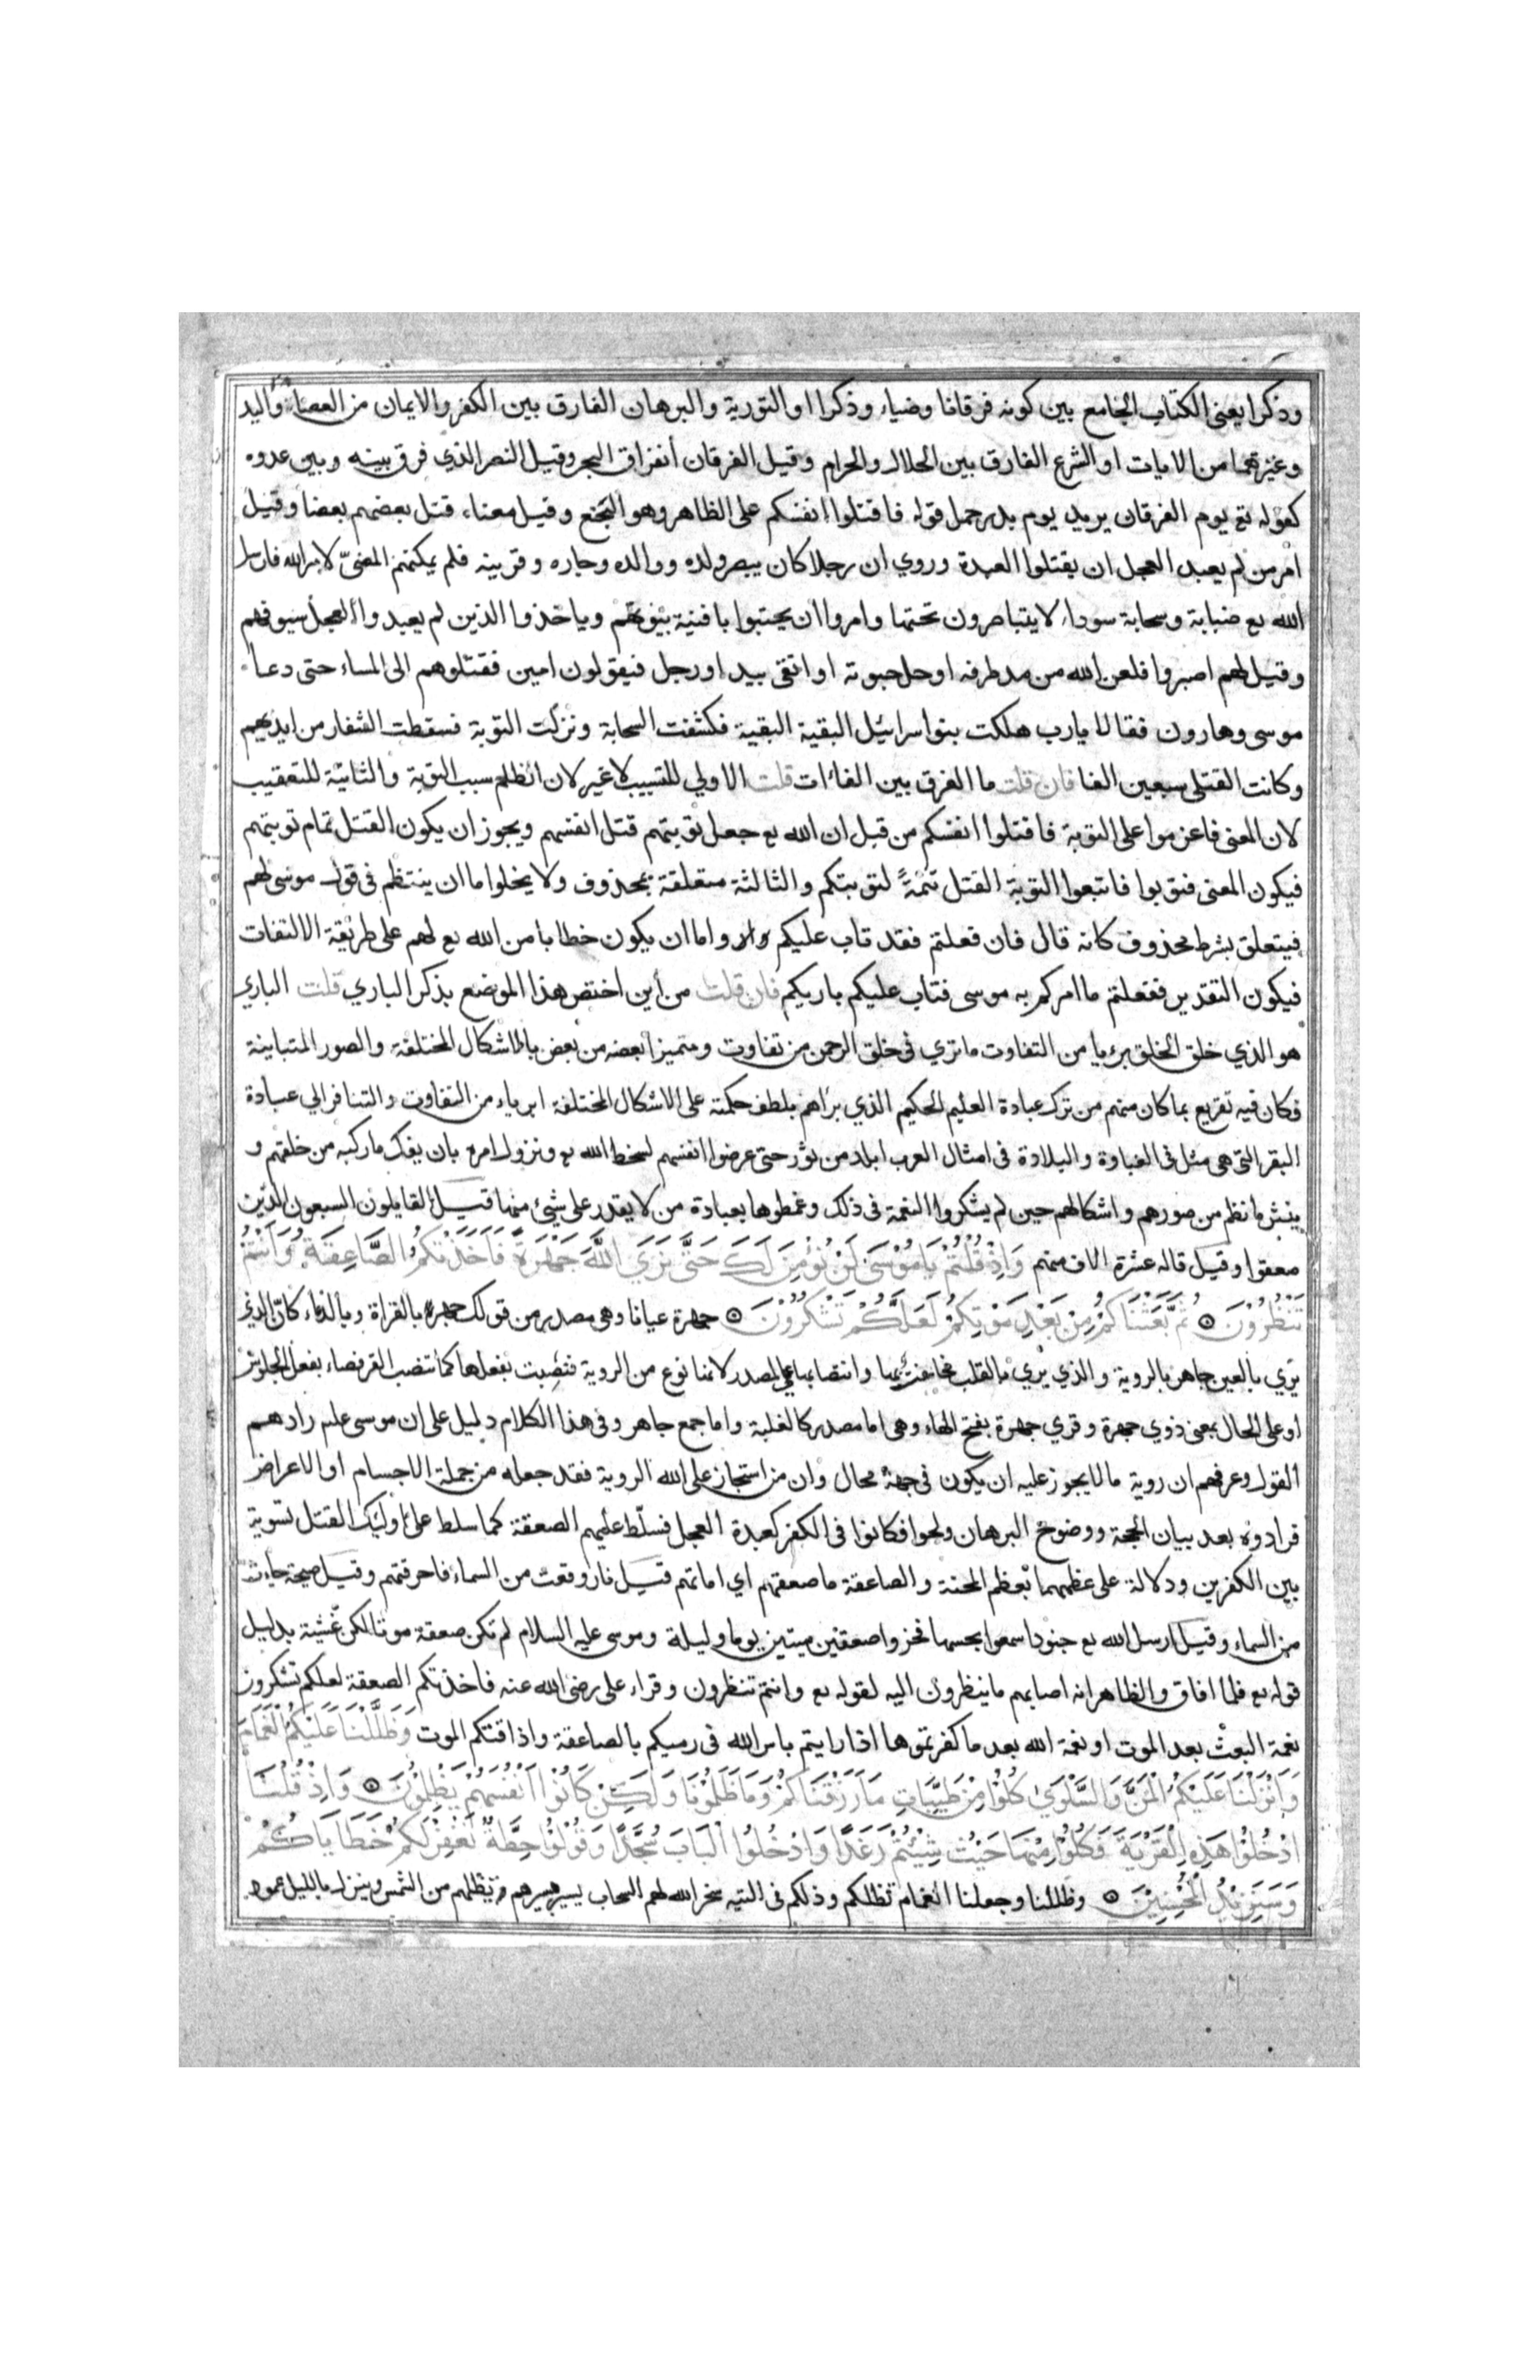 وذكرا يعني الكتاب الجامع بين كونه فرقانا وضياء وذكرا او التورية والبرهان الفارق بين الكفر والايمان من العصا واليد
وغيرهما من الايات او الشرع الفارق بين الحلال والحرام وقيل الفرقان انفراق البحر وقيل النصر الذي فرق بينه وبين عدوه
كقوله تع يوم الفرقان يريد يوم بدر حمل قوله فاقتلوا انفسكم على الظاهر وهو البخع وقيل معناه قتل بعضهم بعضا وقيل
امر من لم يعبد العجل ان يقتلوا العبدة وروي ان رجلا كان يبصر ولده ووالده وجاره وقريبه فلم يمكنهم المضيّ لامر الله فارسل
الله تع ضبابة وسحابة سوداء لا يتباصرون تحتها وامروا ان يحتبوا بافنية بيوتهم وياخذوا الذين لم يعبدوا العجل سيوفهم
وقيل لهم اصبروا فلعن الله من مد طرفه او حل حبوته او اتقى بيد او رجل فيقولون امين فقتلوهم الى المساء حتى دعا
موسى وهارون فقالا يا رب هلكت بنو اسرائيل البقية البقية فكشفت السحابة ونزلت التوبة فسقطت الشفار من ايديهم
وكانت القتلى سبعين الفا فان قلت ما الفرق بين الفاءات قلت الاولي للتسبيب لا غير لان الظلم سبب التوبة والثانية للتعقيب
لان المعنى فاعزموا على التوبة فاقتلوا انفسكم من قبل ان الله تع جعل توبتهم قتل انفسهم ويجوز ان يكون القتل تمام توبتهم
فيكون المعنى فتوبوا فاتبعوا التوبة القتل تتمةً لتوبتكم والثالثة متعلقة بمحذوف ولا يخلوا اما ان ينتظم في قول موسى لهم
فيتعلق بشرط محذوف كانه قال فان فعلتم فقد تاب عليكم واما ان يكون خطابا من الله تع لهم على طريقة الالتفات
فيكون التقدير ففعلتم ما امركم به موسى فتاب عليكم باريكم فان قلت من أين اختص هذا الموضع بذكر الباري قلت الباري
هو الذي خلق الخلق بريا من التفاوت ما تري في خلق الرحمن من تفاوت ومتميزا بعضه من بعض بالاشكال المختلفة والصور المتباينة
فكان فيه تقريع بما كان منهم من ترك عبادة العليم الحكيم الذي براهم بلطف حكمته على الاشكال المختلفة ابرياء من التفاوت والتنافر الي عبادة
البقر التي هي مثل في الغباوة والبلادة في امثال العرب ابلد من ثور حتى عرضوا انفسهم لسخط الله تع ونزول امره بان يفك ما ركبه من خلقهم و
ينثر ما نظم من صورهم واشكالهم حين لم يشكروا النعمة في ذلك وغمطوها بعبادة من لا يقدر على شيئ منها قيل القايلون السبعون الذين
صعقوا وقيل قاله عشرة الاف منهم وَاِذْ قُلْتُمْ يَا مُوْسَى لَنْ نُؤْمِنَ لَكَ حَتَّى نَرَي اللَّهَ جَهْرَةً فَاَخَذَتْكُمُ الصَّاعِقَةُ وَاَنْتُمْ
تَنْظُرُوْنَ ۞ ثُمَّ بَعَثْنَاكُمْ مِنْ بَعْدِ مَوْتِكُمْ لَعَلَّكُمْ تَشْكُرُوْنَ ۞ جهرة عيانا وهي مصدر من قولك جهر بالقراة وبالدعاء كان الذي
يري بالعين جاهر بالروية والذي يري بالقلب مخافت بها وانتصابها على المصدر لانها نوع من الروية فنصبت بفعلها كما تنصب القرفصاء بفعل الجلوس
او على الحال بمعنى ذوي جهرة وقري جهرة بفتح الهاء وهي اما مصدر كالغلبة واما جمع جاهر وفي هذا الكلام دليل على ان موسى علم رادهم
القول وعرفهم ان روية ما لا يجوز عليه ان يكون في جهة محال وان من استجاز على الله الروية فقد جعله من جملة الاجسام او الاعراض
فرادوه بعد بيان الحجة ووضوح البرهان ولجوا فكانوا في الكفر كعبدة العجل فسلّط عليهم الصعقة كما سلط على اوليك القتل تسوية
بين الكفرين ودلالة على عظمهما بعظم المحنة والصاعقة ما صعقهم اي اماتهم قيل نار وقعت من السماء فاحرقتهم وقيل صيحة جاءت
من السماء وقيل ارسل الله تع جنودا سمعوا بحسها فخروا صعقين ميتين يوما وليلة وموسى عليه السلام لم تكن صعقة موتا لكن غشية بدليل
قوله تع فلما افاق والظاهر انه اصابهم ما ينظرون اليه لقوله تع وانتم تنظرون وقراء على رضى الله عنه فاخذتكم الصعقة لعلكم تشكرون
نعمة البعث بعد الموت او نعمة الله بعد ما كفرتموها اذا رايتم باس الله في رميكم بالصاعقة واذاقتكم الموت وَظَلَّلْنَا عَلَيْكُمُ الْغَمَامَ
وَاَنْزَلْنَا عَلَيْكُمُ الْمَنَّ وَالسَّلْوَيٰ كُلُوْا مِنْ طَيِّبَاتِ مَا رَزَقْنَاكُمْ وَمَا ظَلَمُوْنَا وَلَكِنْ كَانُوْا اَنْفُسَهُمْ يَظْلِمُوْنَ ۞ وَاِذْ قُلْنَا
ادْخُلُوْا هَذِهِ الْقَرْيَةَ فَكُلُوْا مِنْهَا حَيْثُ شِيْئْتُمْ رَغَدًا وَادْخُلُوا الْبَابَ سُجَّدًا وَقُوْلُوْا حِطَّةٌ نَغْفِرْ لَكُمْ خَطَايَاكُمْ
وَسَنَزِيْدُ الْمُحْسِنِيْنَ ۞ وظللنا وجعلنا الغمام تظلكم وذلكم في التيه سخر الله لهم السحاب يسير بسيرهم تظلهم من الشمس وينزل بالليل عمود